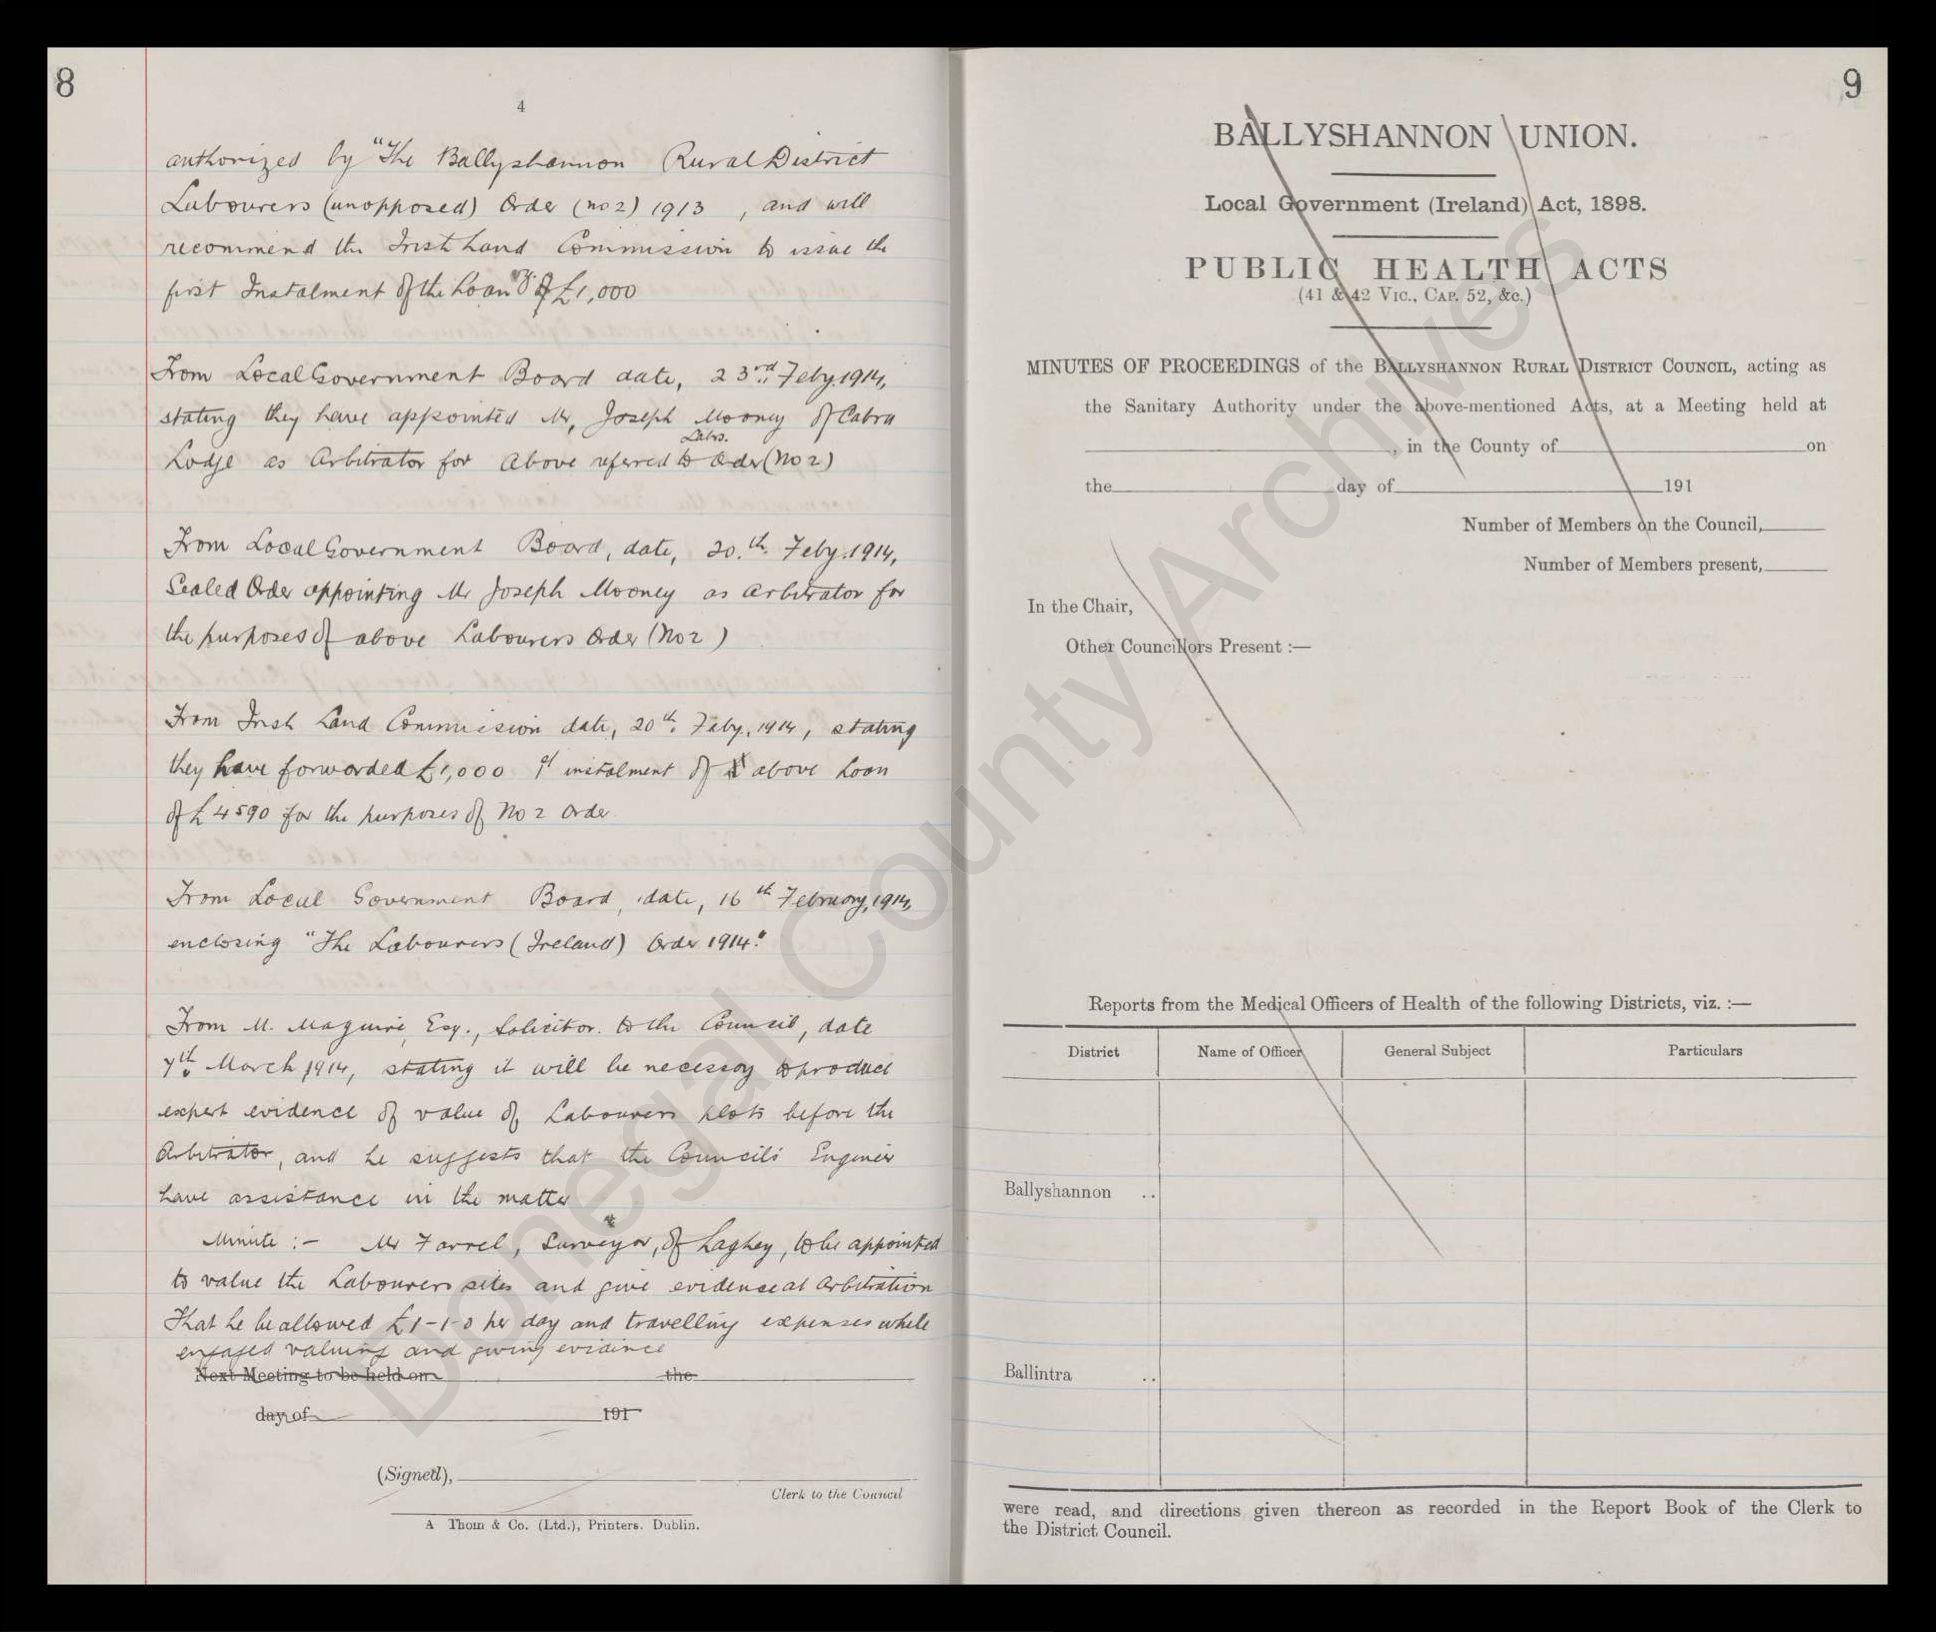 8
4
authorized by "The Ballyshannon Rural District
Labourers (unopposed) Order (no 2) 1913 , and will
recommend the Irish Land Commission to issue the
first Instalment of the Loan of £1,000
From Local Government Board date, 23rd Feby. 1914,
stating they have appointed Mr, Joseph Mooney of Cabra
Labrs.
Lodge as Arbitrator for above referred to Order (No 2)
From Local Government Board, date, 20.th Feby. 1914,
Sealed Order appointing Mr Joseph Mooney as Arbitrator for
the purposes of above Labourers Order (No 2)
From Irish Land Commission date, 20th. Feby, 1914, stating
they have forwarded £1,000 1st instalment of above Loan
of £4590 for the purposes of No 2 Order
From Local Government Board, date, 16th February, 1914,
enclosing "The Labourers (Ireland) Order 1914."
From M. Maguire, Esq., Solicitor. to the Council, date
7th March 1914, stating it will be necessary to produce
expert evidence of value of Labourers plots before the
Arbitrator, and he suggests that the Council's Engineer
have assistance in the matter
Minute :- Mr Farrel, Surveyor, of Laghey, to be appointed
to value the Labourers sites and give evidence at Arbitration
That he be allowed £1-1-0 per day and travelling expenses while
engaged valuing and giving evidence
Next Meeting to be held on the
day of 191
(Signed),
Clerk to the Council
A Thom & Co. (Ltd.), Printers. Dublin.
9
BALLYSHANNON UNION.
Local Government (Ireland) Act, 1898.
PUBLIC HEALTH ACTS
(41 & 42 Vic., Cap. 52, &c.)
MINUTES OF PROCEEDINGS of the Ballyshannon Rural District Council, acting as
the Sanitary Authority under the above-mentioned Acts, at a Meeting held at
, in the County of on
the day of 191
Number of Members on the Council,
Number of Members present,
In the Chair,
Other Councillors Present :—
Reports from the Medical Officers of Health of the following Districts, viz. :—
District Name of Officer General Subject Particulars
Ballyshannon ..
Ballintra ..
were read, and directions given thereon as recorded in the Report Book of the Clerk to
the District Council.
Donegal County Archives